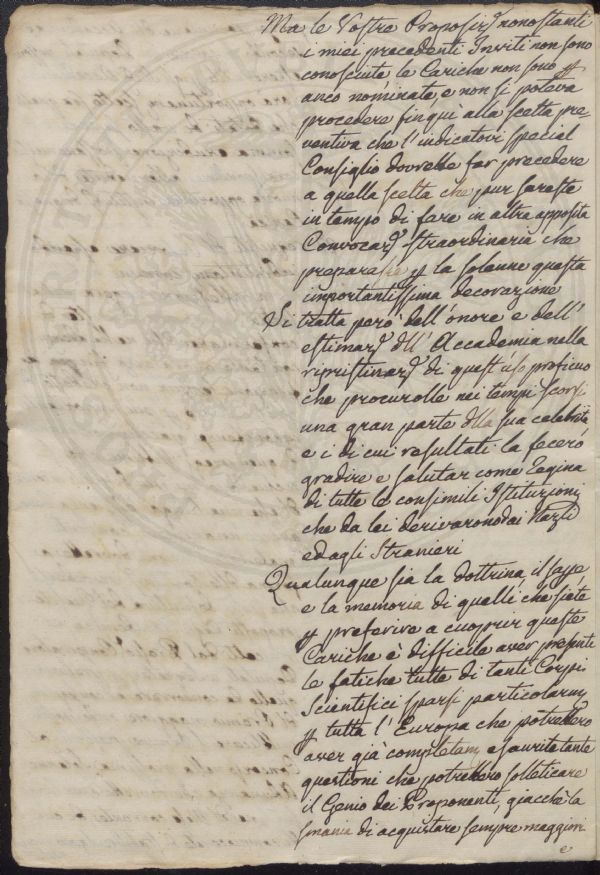 Ma le Vostre Proposizⁱ nonostanti
i miei precedenti Inviti non sono
conosciute le Cariche non sono p
anco nominate, e non si poteva
procedere fin quì alla scelta pre
ventiva che l'indicatovi special
Consiglio dovrebbe far precedere
a quella scelta che pur sareste
in tempo di fare in altra apposita
Convocazᵉ straordinaria che
preparasse p la solenne questa
importantissima decorazione
Si tratta però dell'onore e dell'
estimazᵉ dll'Accademia nella
ripristinazᵉ di quest'uso proficuo
che procurolle nei tempi scorsi
una gran parte dlla sua celebrità
e i di cui resultati la fecero
gradire e salutar come Regina
di tutte le consimili Istituzioni
che da lei derivarono dai Nazli
ed agli Stranieri
Qualunque sia la dottrina, il sape
e la memoria di quelli che siete
p preferire a cuoprir queste
Cariche è difficile aver presenti
le fatiche tutte di tanti Corpi
Scientifici sparsi particolarm
p tutta l'Europa che potrebbero
aver già completam esaurite tante
questioni che potrebbero solleticare
il Genio dei Proponenti, giacchè la
smania di acquistare sempre maggiori
e